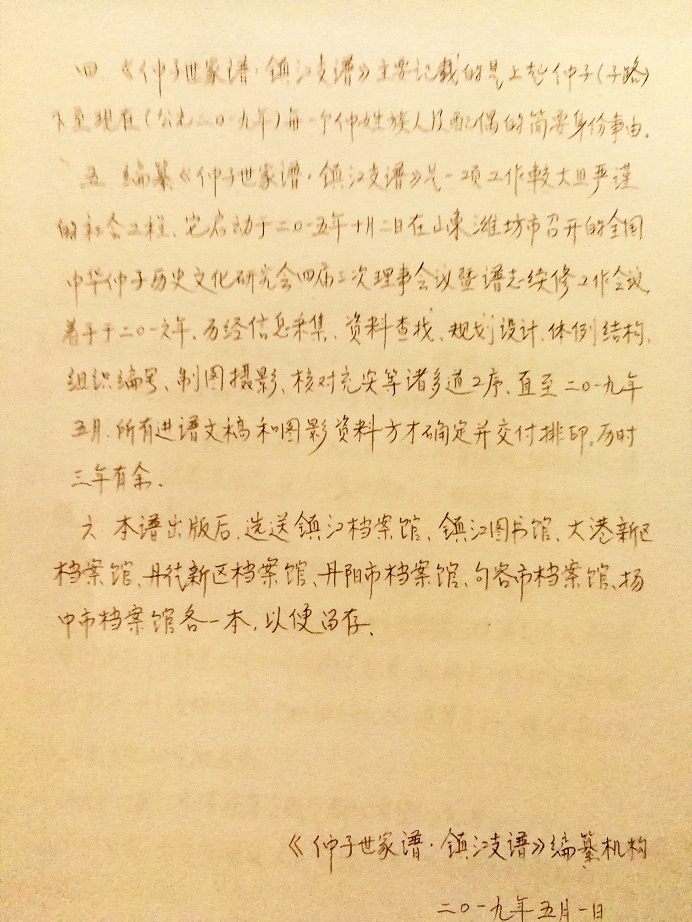 四 《仲子世家谱·镇江支谱》主要记载的是上起仲子(子路)
下至现在(公元二〇一九年)每一个仲姓族人及配偶的简要身份事由。
五 编纂《仲子世家谱·镇江支谱》是一项工作较大且严谨
的社会工程、它启动于二〇一五年十月二日在山东潍坊市召开的全国
中华仲子历史文化研究会四届三次理事会议暨谱志续修工作会议,
着手于二〇一六年、历经信息采集、资料查找、规划设计、体例结构、
组织编号、制图摄影、核对充实等诸多道工序、直至二〇一九年
五月、所有进谱文稿和图影资料方才确定并交付排印。历时
三年有余、
六 本谱出版后、选送镇江档案馆、镇江图书馆、大港新区
档案馆、丹徒新区档案馆、丹阳市档案馆、句容市档案馆、扬
中市档案馆各一本,以便留存、
《仲子世家谱·镇江支谱》编纂机构
二〇一九年五月一日